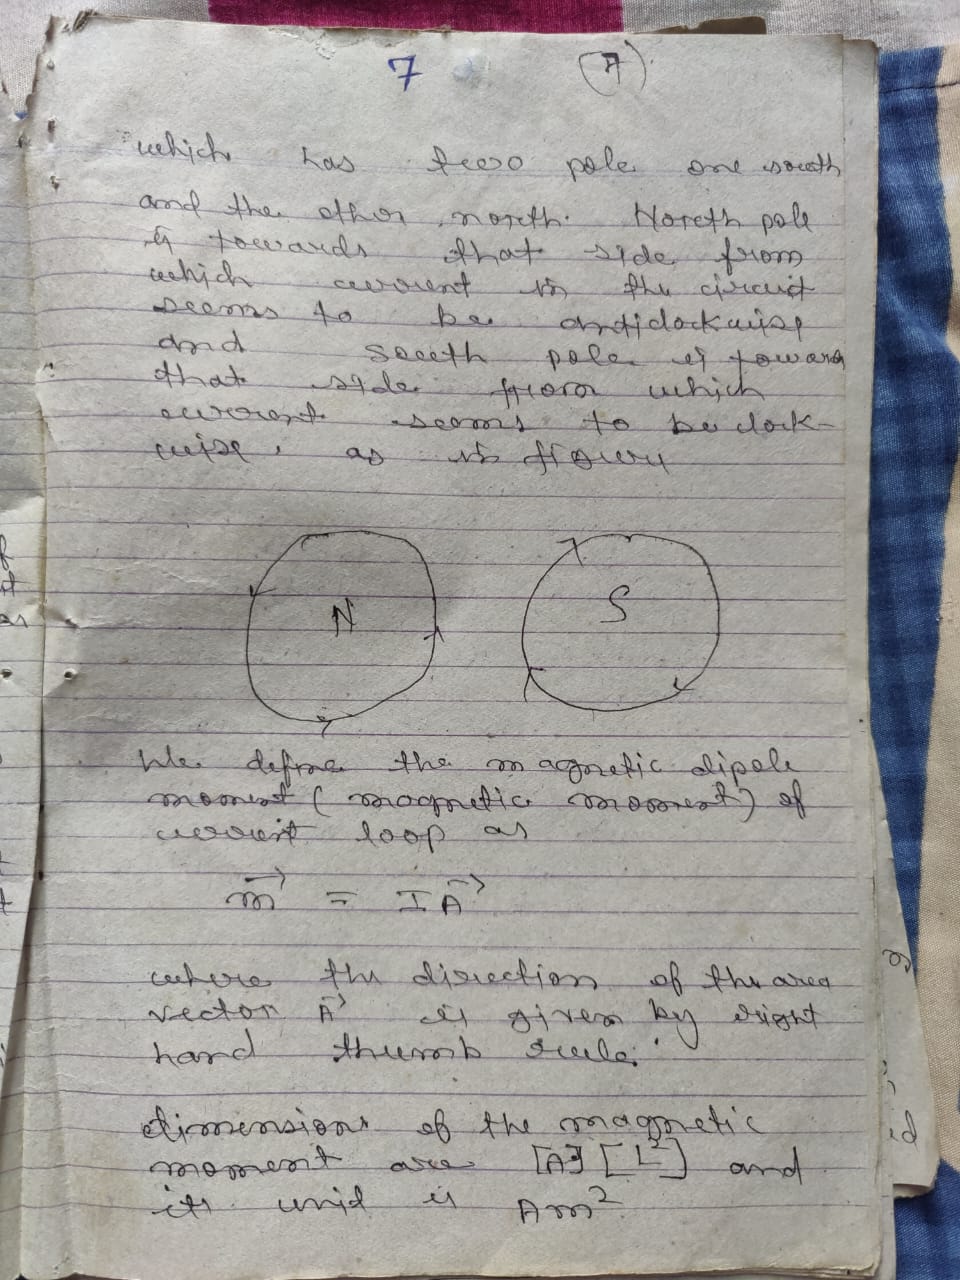 7 (7)
which has two pole one south
and the other north. North pole
is towards that side from
which current in the circuit
seems to be anticlockwise
and south pole is toward
that side from which
current seems to be clock-
wise, as in figure
N S
We define the magnetic dipole
moment (magnetic moment) of
current loop as
m⃗ = I A⃗
where the direction of the area
vector A⃗ is given by right
hand thumb rule.
dimensions of the magnetic
moment are [A] [L²] and
its unit is Am²